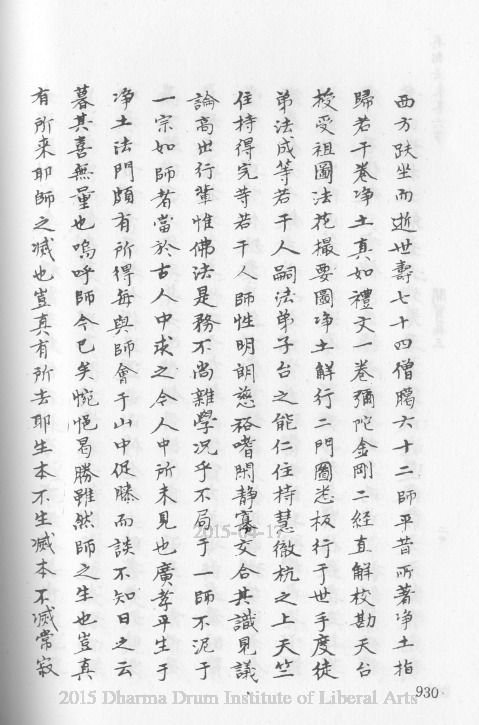 西方趺坐而逝世壽七十四僧臘六十二師平昔所著淨土指
歸若干卷淨土真如禮文一卷彌陀金剛二經直解校勘天台
授受祖圖法花撮要圖淨土解行二門圖悉板行于世手度徒
弟法成等若干人嗣法弟子台之能仁住持慧徹杭之上天竺
住持得完等若干人師性明朗慈裕嗜閑靜寡交合其識見議
論高出行輩惟佛法是務不尚雜學况乎不局于一師不泥于
一宗如師者當於古人中求之今人中所未見也廣孝平生于
淨土法門頗有所得每與師會于山中促膝而談不知日之云
暮其喜無量也嗚呼師今已矣惋悒曷勝雖然師之生也豈真
有所來耶師之滅也豈真有所去耶生本不生滅本不滅常寂
930
2015-04-17
2015 Dharma Drum Institute of Liberal Arts